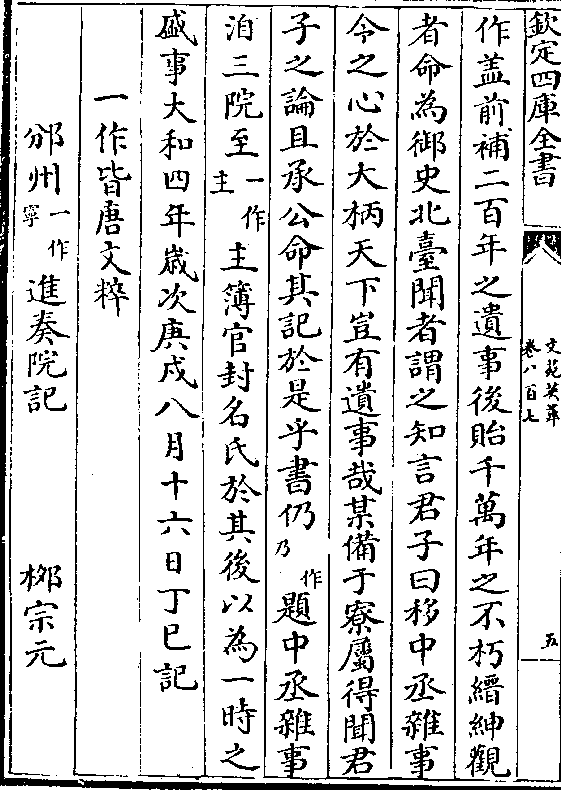 欽定四庫全書
文苑英華
卷八百七
五
作盖前補二百年之遺事後貽千萬年之不朽縉紳觀
者命為御史北臺聞者謂之知言君子曰移中丞雜事
令之心於大柄天下豈有遺事哉某備于寮屬得聞君
子之論且承公命其記於是乎書仍作乃題中丞雜事
洎三院至一作主主簿官封名氏於其後以為一時之
盛事大和四年歲次庚戌八月十六日丁巳記
一作皆唐文粹
邠州一作寧進奏院記 栁宗元